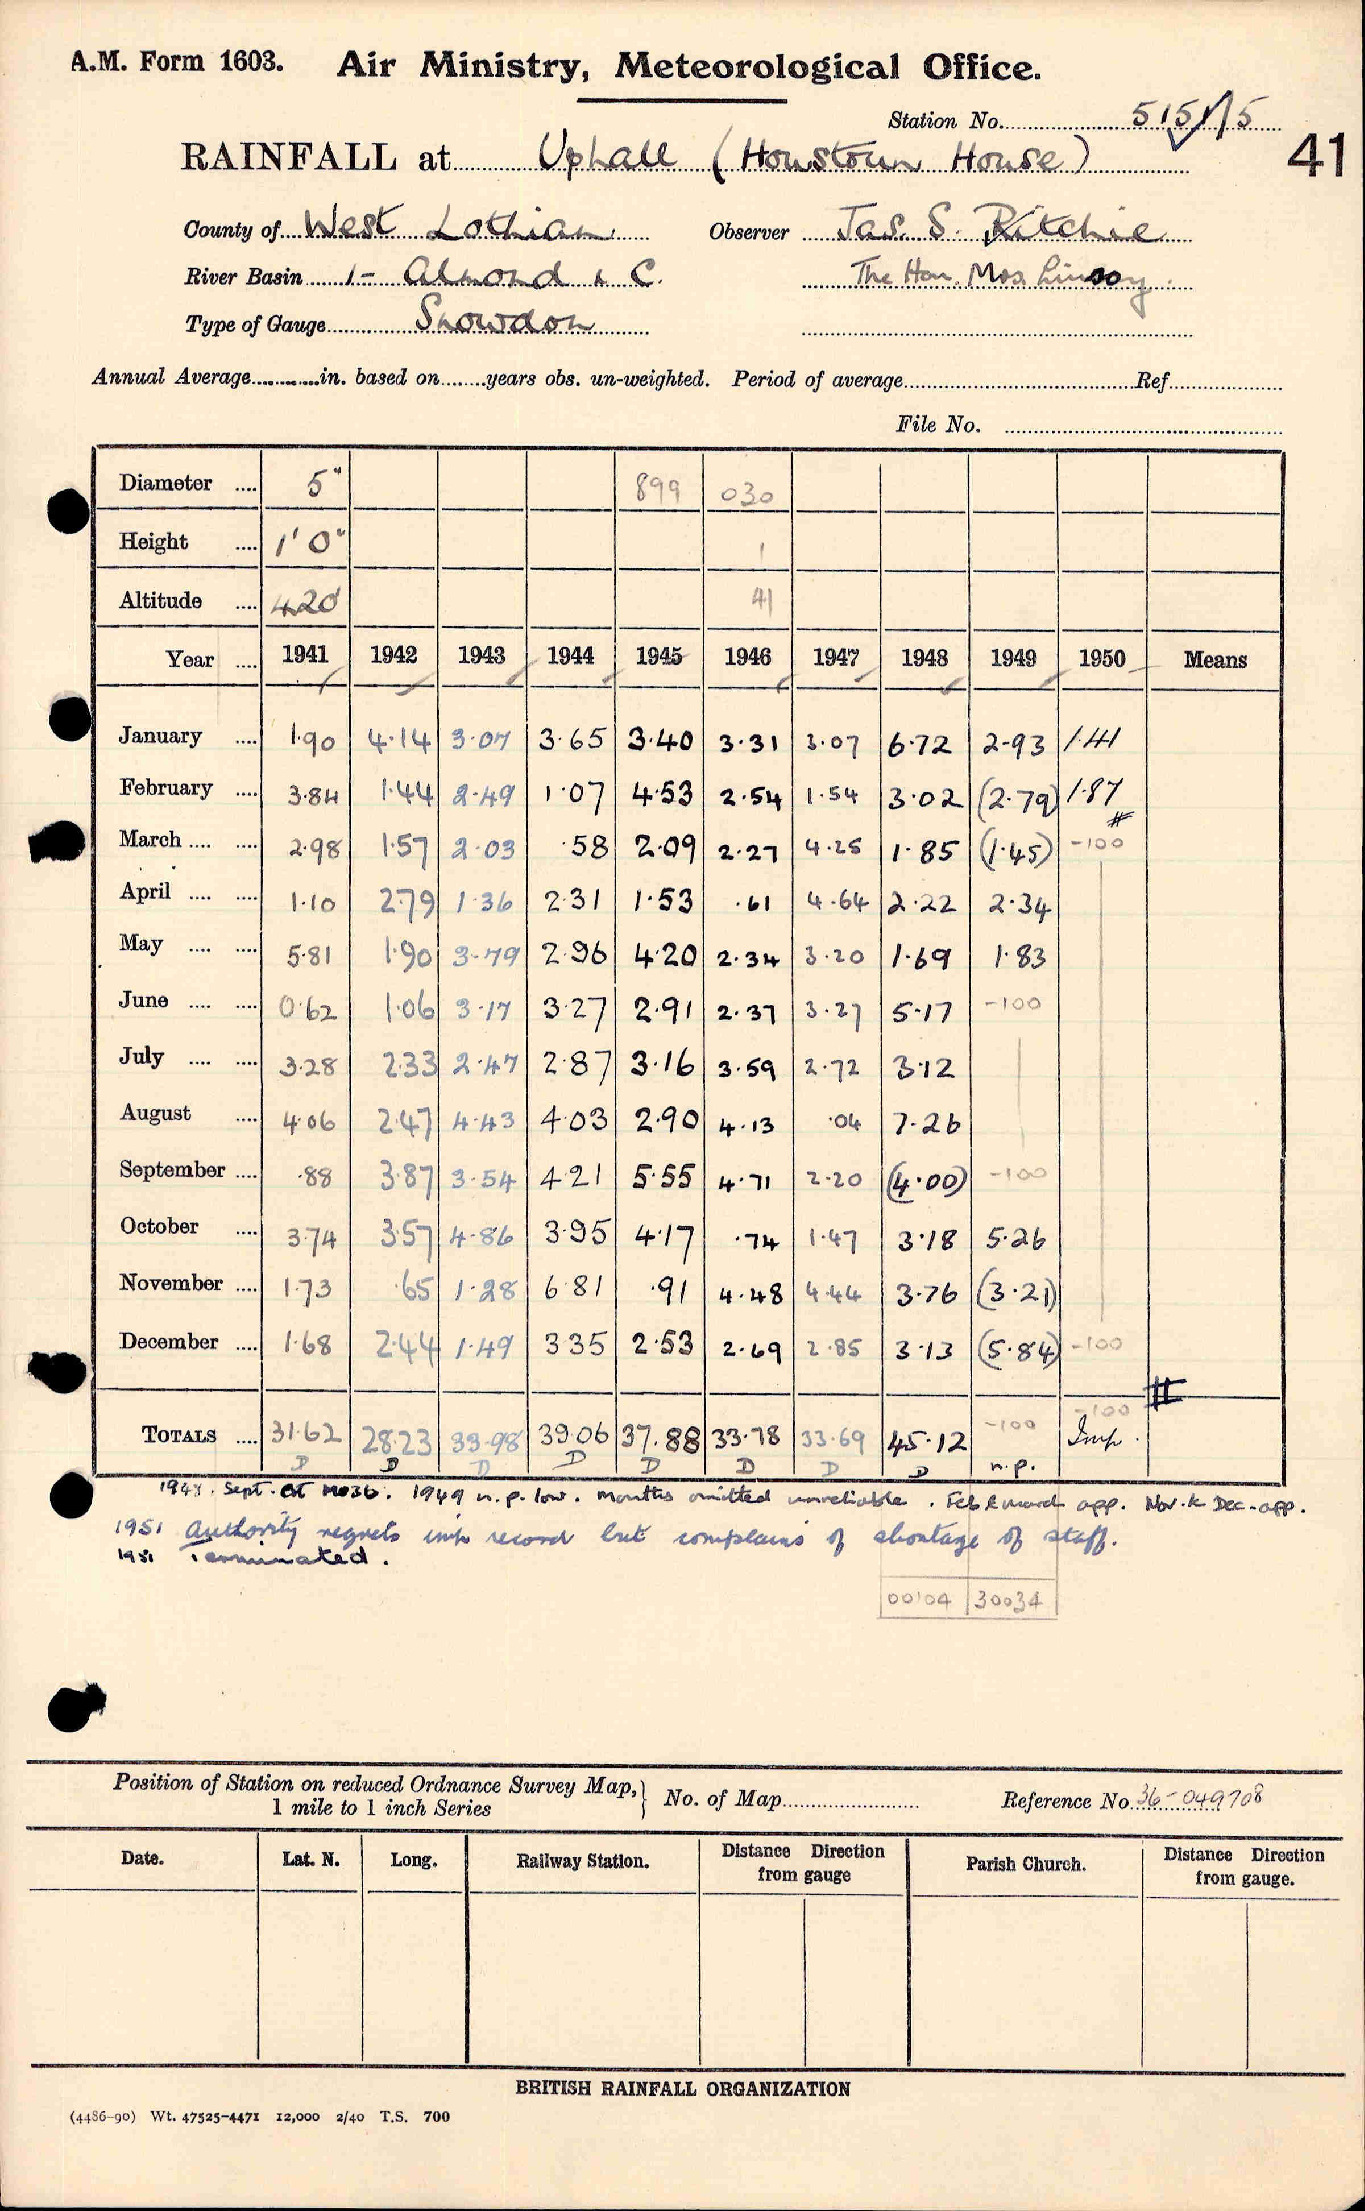 A.M. Form 1603. Air Ministry, Meteorological Office.
Station No. 5151/15
RAINFALL at Uphall (Houstoun House) 41
County of West Lothian Observer Jas. S. Ritchie
River Basin 1- Almond & C. The Hon. Mrs Lindsay
Type of Gauge Snowdon
Annual Average in. based on years obs. un-weighted. Period of average Ref
File No.
Diameter 5" 899 030
Height 1' 0" 1
Altitude 420' 41
Year 1941 1942 1943 1944 1945 1946 1947 1948 1949 1950 Means
January 1.90 4.14 3.07 3.65 3.40 3.31 3.07 6.72 2.93 1.41
February 3.84 1.44 2.49 1.07 4.53 2.54 1.54 3.02 (2.79) 1.87
March 2.98 1.57 2.03 .58 2.09 2.27 4.25 1.85 (1.45) -100
April 1.10 2.79 1.36 2.31 1.53 .61 4.64 2.22 2.34
May 5.81 1.90 3.79 2.96 4.20 2.34 3.20 1.69 1.83
June 0.62 1.06 3.17 3.27 2.91 2.37 3.27 5.17 -100
July 3.28 2.33 2.47 2.87 3.16 3.59 2.72 3.12
August 4.06 2.47 4.43 4.03 2.90 4.13 .04 7.26
September .88 3.87 3.54 4.21 5.55 4.71 2.20 (4.00) -100
October 3.74 3.57 4.86 3.95 4.17 .74 1.47 3.18 5.26
November 1.73 .65 1.28 6.81 .91 4.48 4.44 3.76 (3.21)
December 1.68 2.44 1.49 3.35 2.53 2.69 2.85 3.13 (5.84) -100
-100
TOTALS 31.62 28.23 33.98 39.06 37.88 33.78 33.69 45.12 -100 Imp.
D D D D D D D D n.p.
1948. Sept. est MO36. 1949 n.p. low. months omitted unreliable. Feb & march app. Nov. & Dec. app.
1951 Authority regrets imp record but complains of shortage of staff.
1951 Terminated.
00104 30034
Position of Station on reduced Ordnance Survey Map, 1 mile to 1 inch Series No. of Map Reference No. 36-049708
Date. Lat. N. Long. Railway Station. Distance Direction from gauge Parish Church. Distance Direction from gauge.
BRITISH RAINFALL ORGANIZATION
(4486-90) Wt. 47525-4471 12,000 2/40 T.S. 700